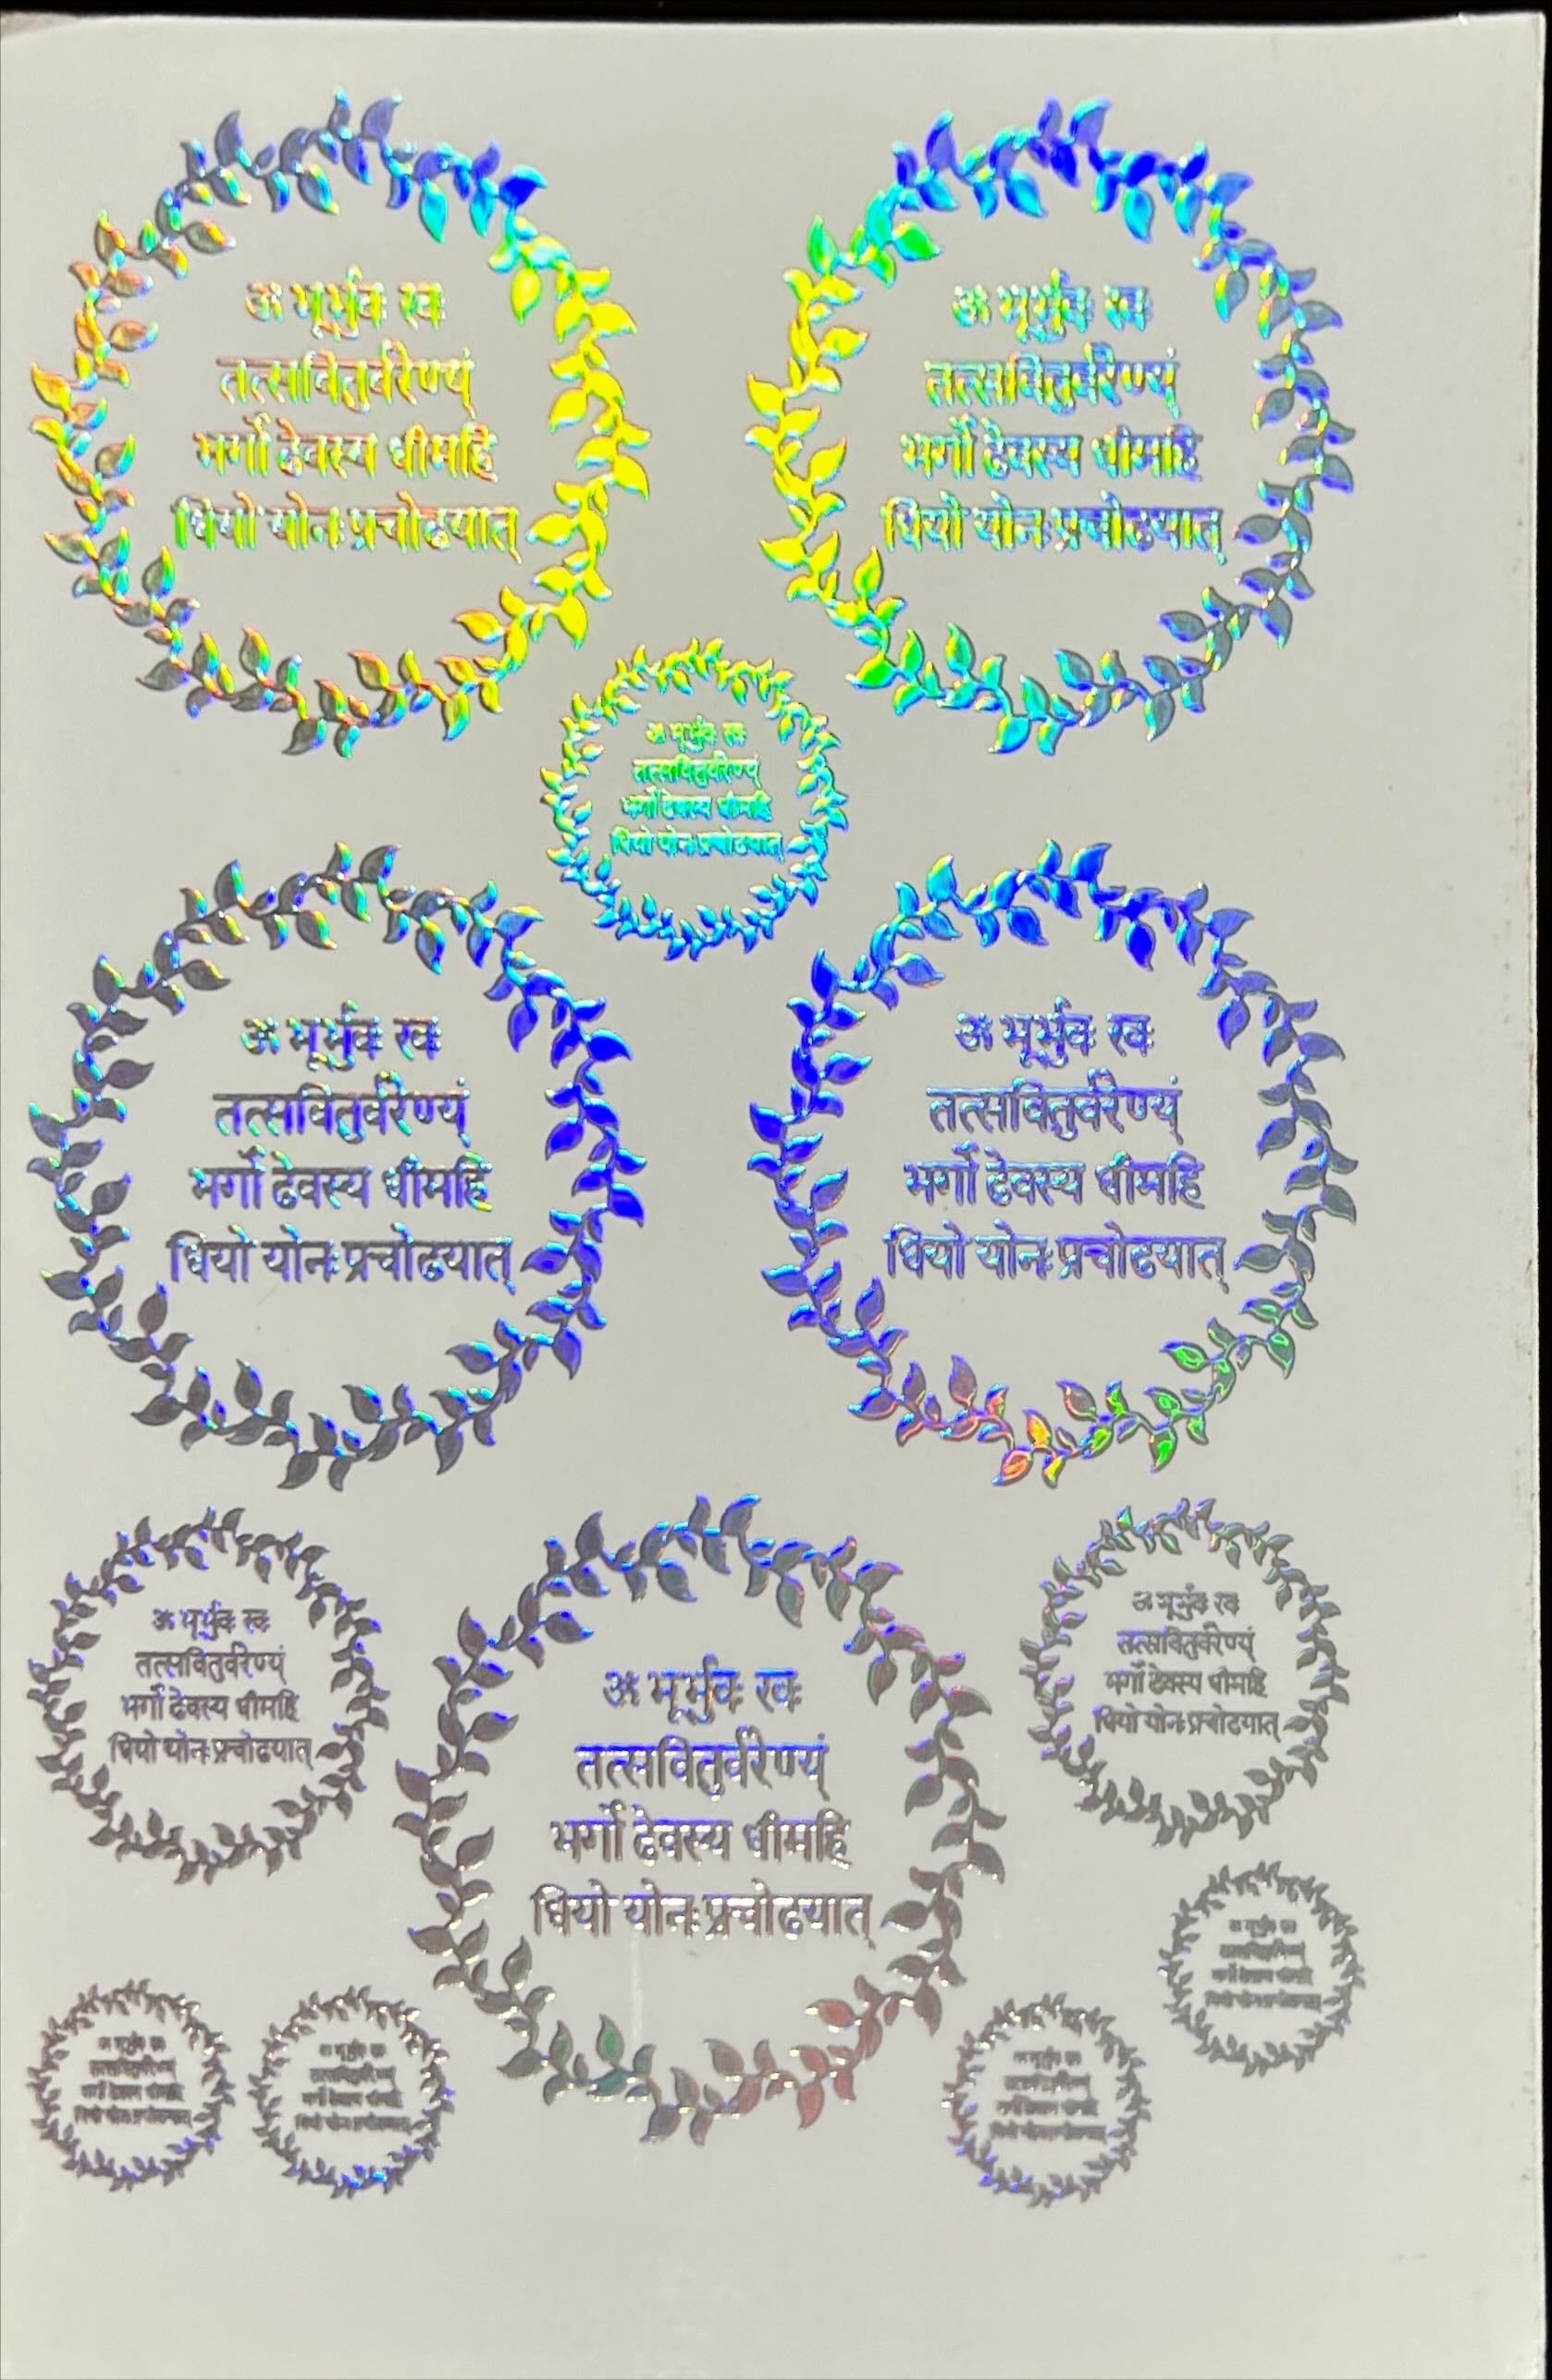 ॐ भूर्भुवः स्वः
तत्सवितुर्वरेण्यं
भर्गो देवस्य धीमहि
धियो योनः प्रचोदयात्
ॐ भूर्भुवः स्वः
तत्सवितुर्वरेण्यं
भर्गो देवस्य धीमहि
धियो योनः प्रचोदयात्
ॐ भूर्भुवः स्वः
तत्सवितुर्वरेण्यं
भर्गो देवस्य धीमहि
धियो योनः प्रचोदयात्
ॐ भूर्भुवः स्वः
तत्सवितुर्वरेण्यं
भर्गो देवस्य धीमहि
धियो योनः प्रचोदयात्
ॐ भूर्भुवः स्वः
तत्सवितुर्वरेण्यं
भर्गो देवस्य धीमहि
धियो योनः प्रचोदयात्
ॐ भूर्भुवः स्वः
तत्सवितुर्वरेण्यं
भर्गो देवस्य धीमहि
धियो योनः प्रचोदयात्
ॐ भूर्भुवः स्वः
तत्सवितुर्वरेण्यं
भर्गो देवस्य धीमहि
धियो योनः प्रचोदयात्
ॐ भूर्भुवः स्वः
तत्सवितुर्वरेण्यं
भर्गो देवस्य धीमहि
धियो योनः प्रचोदयात्